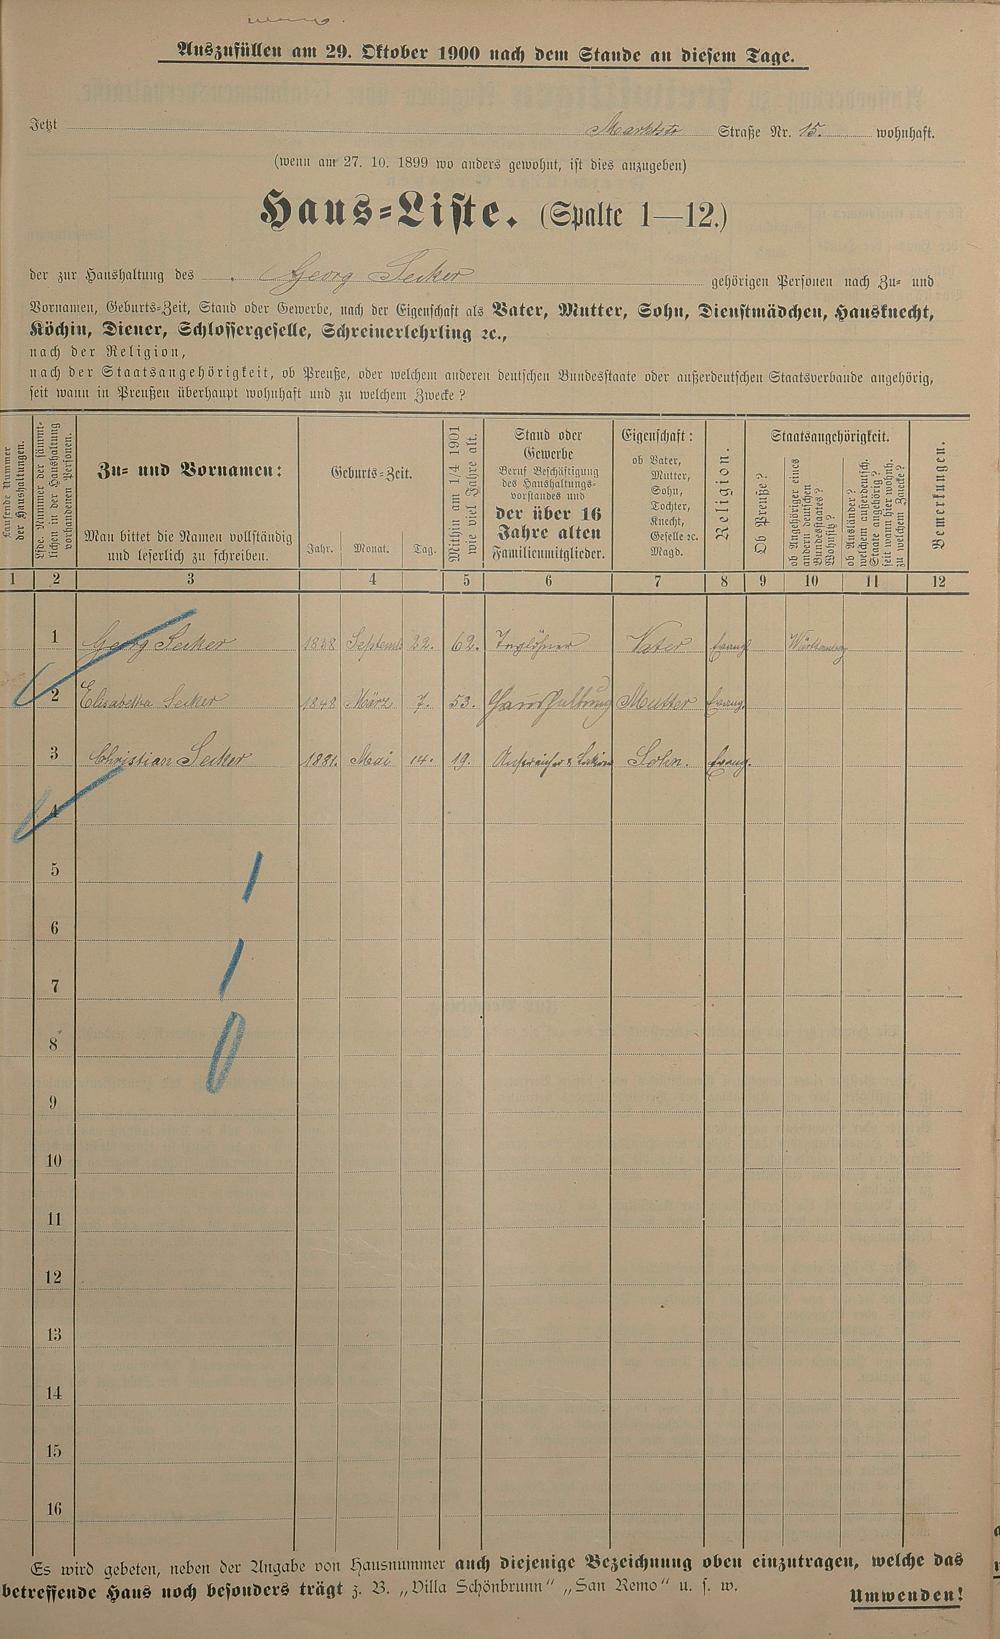 Auszufüllen am 29. Oktober 1900 nach dem Stande an diesem Tage.
Jetzt Marktstr Straße Nr. 15. wohnhaft.
(wenn am 27. 10. 1899 wo anders gewohnt, ist dies anzugeben)
Haus=Liste. (Spalte 1—12.)
der zur Haushaltung des Georg Secker gehörigen Personen nach Zu= und
Vornamen, Geburts=Zeit, Stand oder Gewerbe, nach der Eigenschaft als Vater, Mutter, Sohn, Dienstmädchen, Hausknecht,
Köchin, Diener, Schlossergeselle, Schreinerlehrling ꝛc.,
nach der Religion,
nach der Staatsangehörigkeit, ob Preuße, oder welchem anderen deutschen Bundesstaate oder außerdeutschen Staatsverbande angehörig,
seit wann in Preußen überhaupt wohnhaft und zu welchem Zwecke?
Laufende Nummer
der Haushaltungen.
Lfde. Nummer der sämmt=
lichen in der Haushaltung
vorhandenen Personen.
Zu= und Vornamen:
Man bittet die Namen vollständig
und leserlich zu schreiben.
Geburts=Zeit.
Jahr. Monat. Tag.
Mithin am 1/4 1901
wie viel Jahre alt.
Stand oder
Gewerbe
Beruf Beschäftigung
des Haushaltungs=
vorstandes und
der über 16
Jahre alten
Familienmitglieder.
Eigenschaft:
ob Vater,
Mutter,
Sohn,
Tochter,
Knecht,
Geselle ꝛc.
Magd.
Religion.
Staatsangehörigkeit.
Ob Preuße?
ob Angehöriger eines
andern deutschen
Bundesstaates?
Wohnsitz?
ob Ausländer?
welchem außerdeutsch.
Staate angehörig?
seit wann hier wohnh.
zu welchem Zwecke?
Bemerkungen.
1 2 3 4 5 6 7 8 9 10 11 12
1 Georg Secker 1838 Septemb 22. 62. Taglöhner Vater Evang. Württemberg
2 Elisabetha Secker 1848 März 7. 53. Haushaltung Mutter Evang.
3 Christian Secker 1881. Mai 14. 19. Sohn. Evang.
4
5
6
7
8
9
10
11
12
13
14
15
16
Es wird gebeten, neben der Angabe von Hausnummer auch diejenige Bezeichnung oben einzutragen, welche das
betreffende Haus noch besonders trägt z. B. „Villa Schönbrunn" „San Remo" u. s. w.
Umwenden!